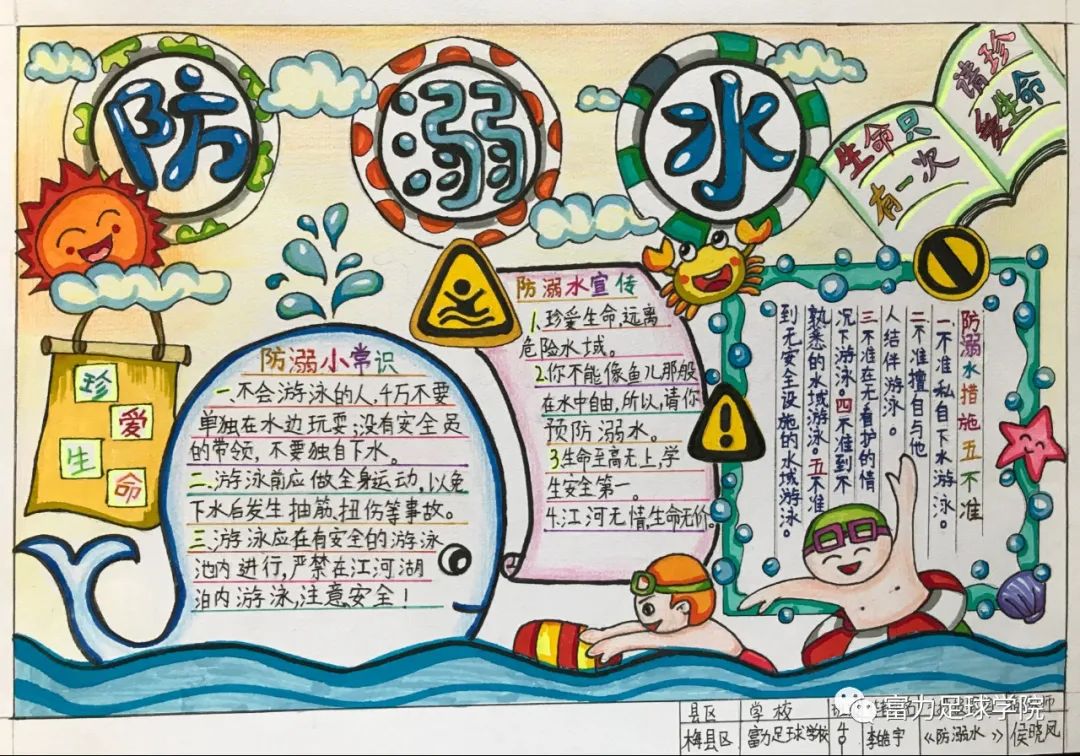 防溺水
生命只
有一次
请珍
爱生命
珍
爱
生
命
防溺小常识
一、不会游泳的人,千万不要
单独在水边玩耍;没有安全员
的带领,不要独自下水。
二、游泳前应做全身运动,以免
下水后发生抽筋、扭伤等事故。
三、游泳应在有安全的游泳
池内进行,严禁在江河湖
泊内游泳,注意安全!
防溺水宣传
1、珍爱生命,远离
危险水域。
2.你不能像鱼儿那般
在水中自由,所以,请你
预防溺水。
3生命至高无上,学
生安全第一。
4.江河无情,生命无价。
防溺水措施五不准
一不准私自下水游泳。
二不准擅自与他
人结伴游泳。
三不准在无看护的情
况下游泳。四不准到不
熟悉的水域游泳。五不准
到无安全设施的水域游泳。
县区 学校
梅县区 富力足球学校 李皓宇 《防溺水》 侯晓凤
富力足球学院